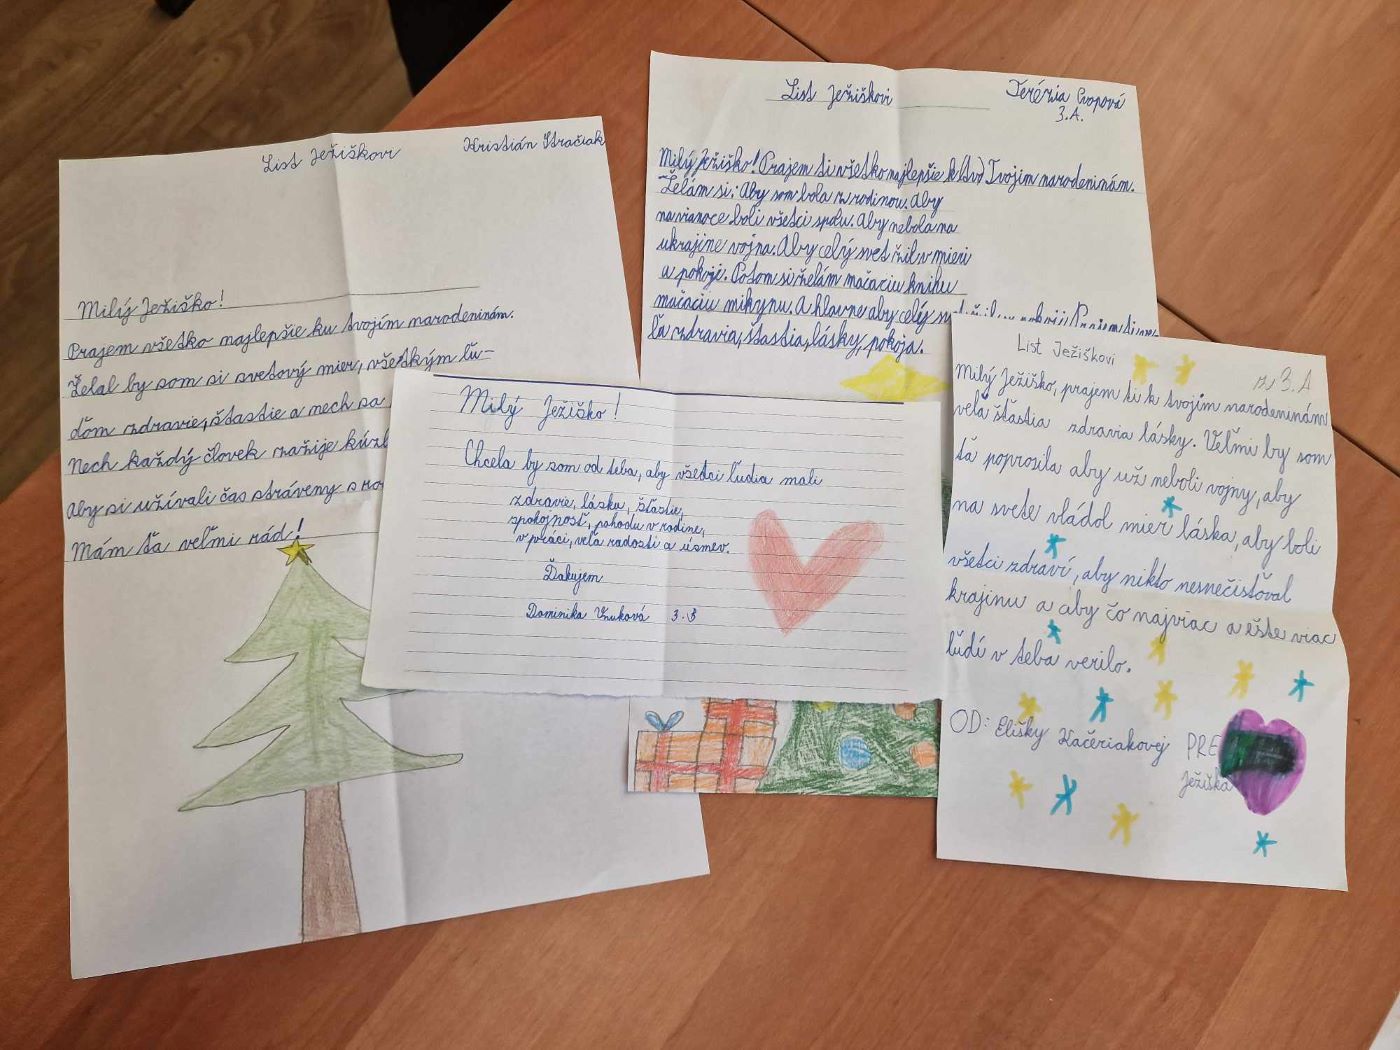 List Ježiškovi
Kristián Stračiak
Milý Ježiško!
Prajem všetko najlepšie ku tvojím narodeninám.
Želal by som si svetový mier, všetkým ľu-
ďom zdravie, šťastie a nech sa
Nech každý človek zažije
aby si užívali čas stráveny s
Mám ťa veľmi rád!
List Ježiškovi
Terézia Cvopová
3.A.
Milý Ježiško! Prajem ti všetko najlepšie k Tvojim narodeninám.
Želám si: Aby som bola z rodinou. Aby
na vianoce boli všetci spolu. Aby nebola na
ukrajine vojna. Aby celý svet žil v mieri
a pokoji. Potom si želám mačaciu knihu
mačaciu mikynu. A hlavne aby celý Prajem ti ve-
ľa zdravia, šťastia, lásky, pokoja.
Milý Ježiško!
Chcela by som od teba, aby všetci ľudia mali
zdravie, lásku, šťastie,
spokojnosť, pohodu v rodine,
v práci, veľa radosti a úsmev.
Ďakujem
Dominika Vnuková 3.B
List Ježiškovi
z 3.A
Milý Ježiško, prajem ti k tvojim narodeninám
veľa šťastia zdravia lásky. Veľmi by som
ťa poprosila aby už neboli vojny, aby
na svete vládol mier láska, aby boli
všetci zdraví, aby nikto nesnečisťoval
krajinu a aby čo najviac a ešte viac
ľudí v teba verilo.
OD: Elišky Kačeriakovej
PRE
Ježiška